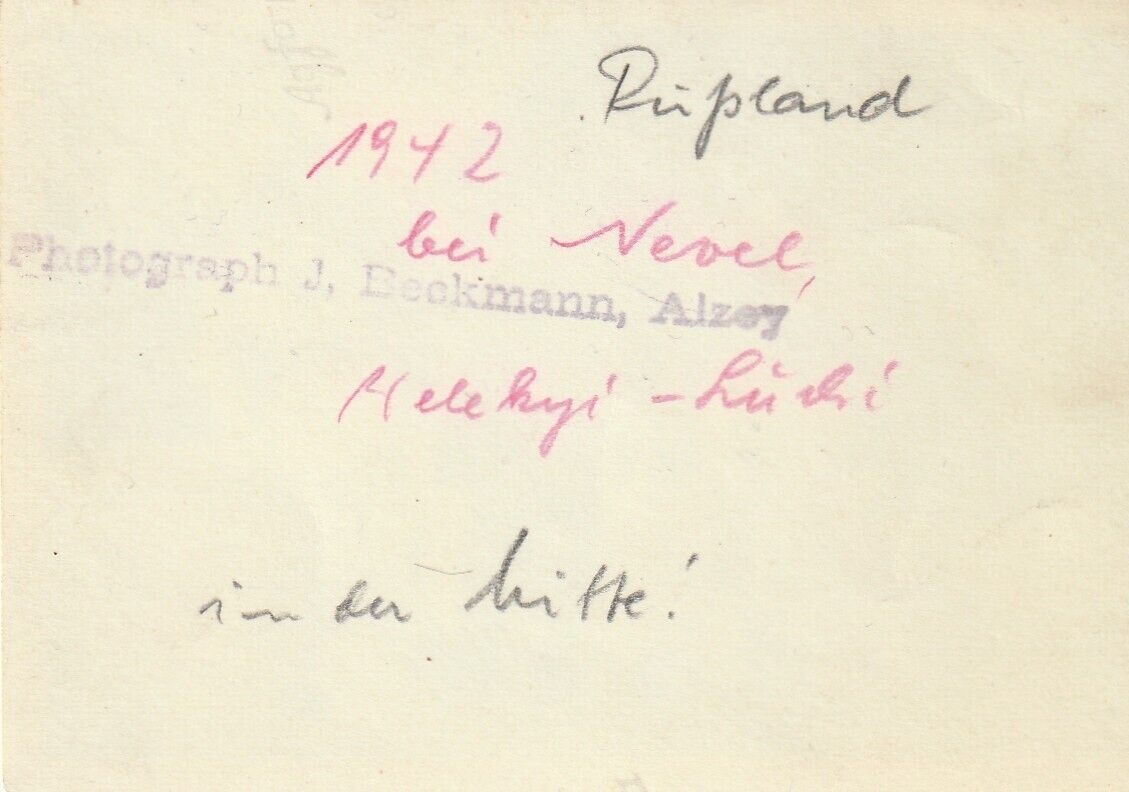 Rußland
1942
bei Nevel,
Photograph J. Beckmann, Alzey
Welekyi - Luki
in der Mitte!